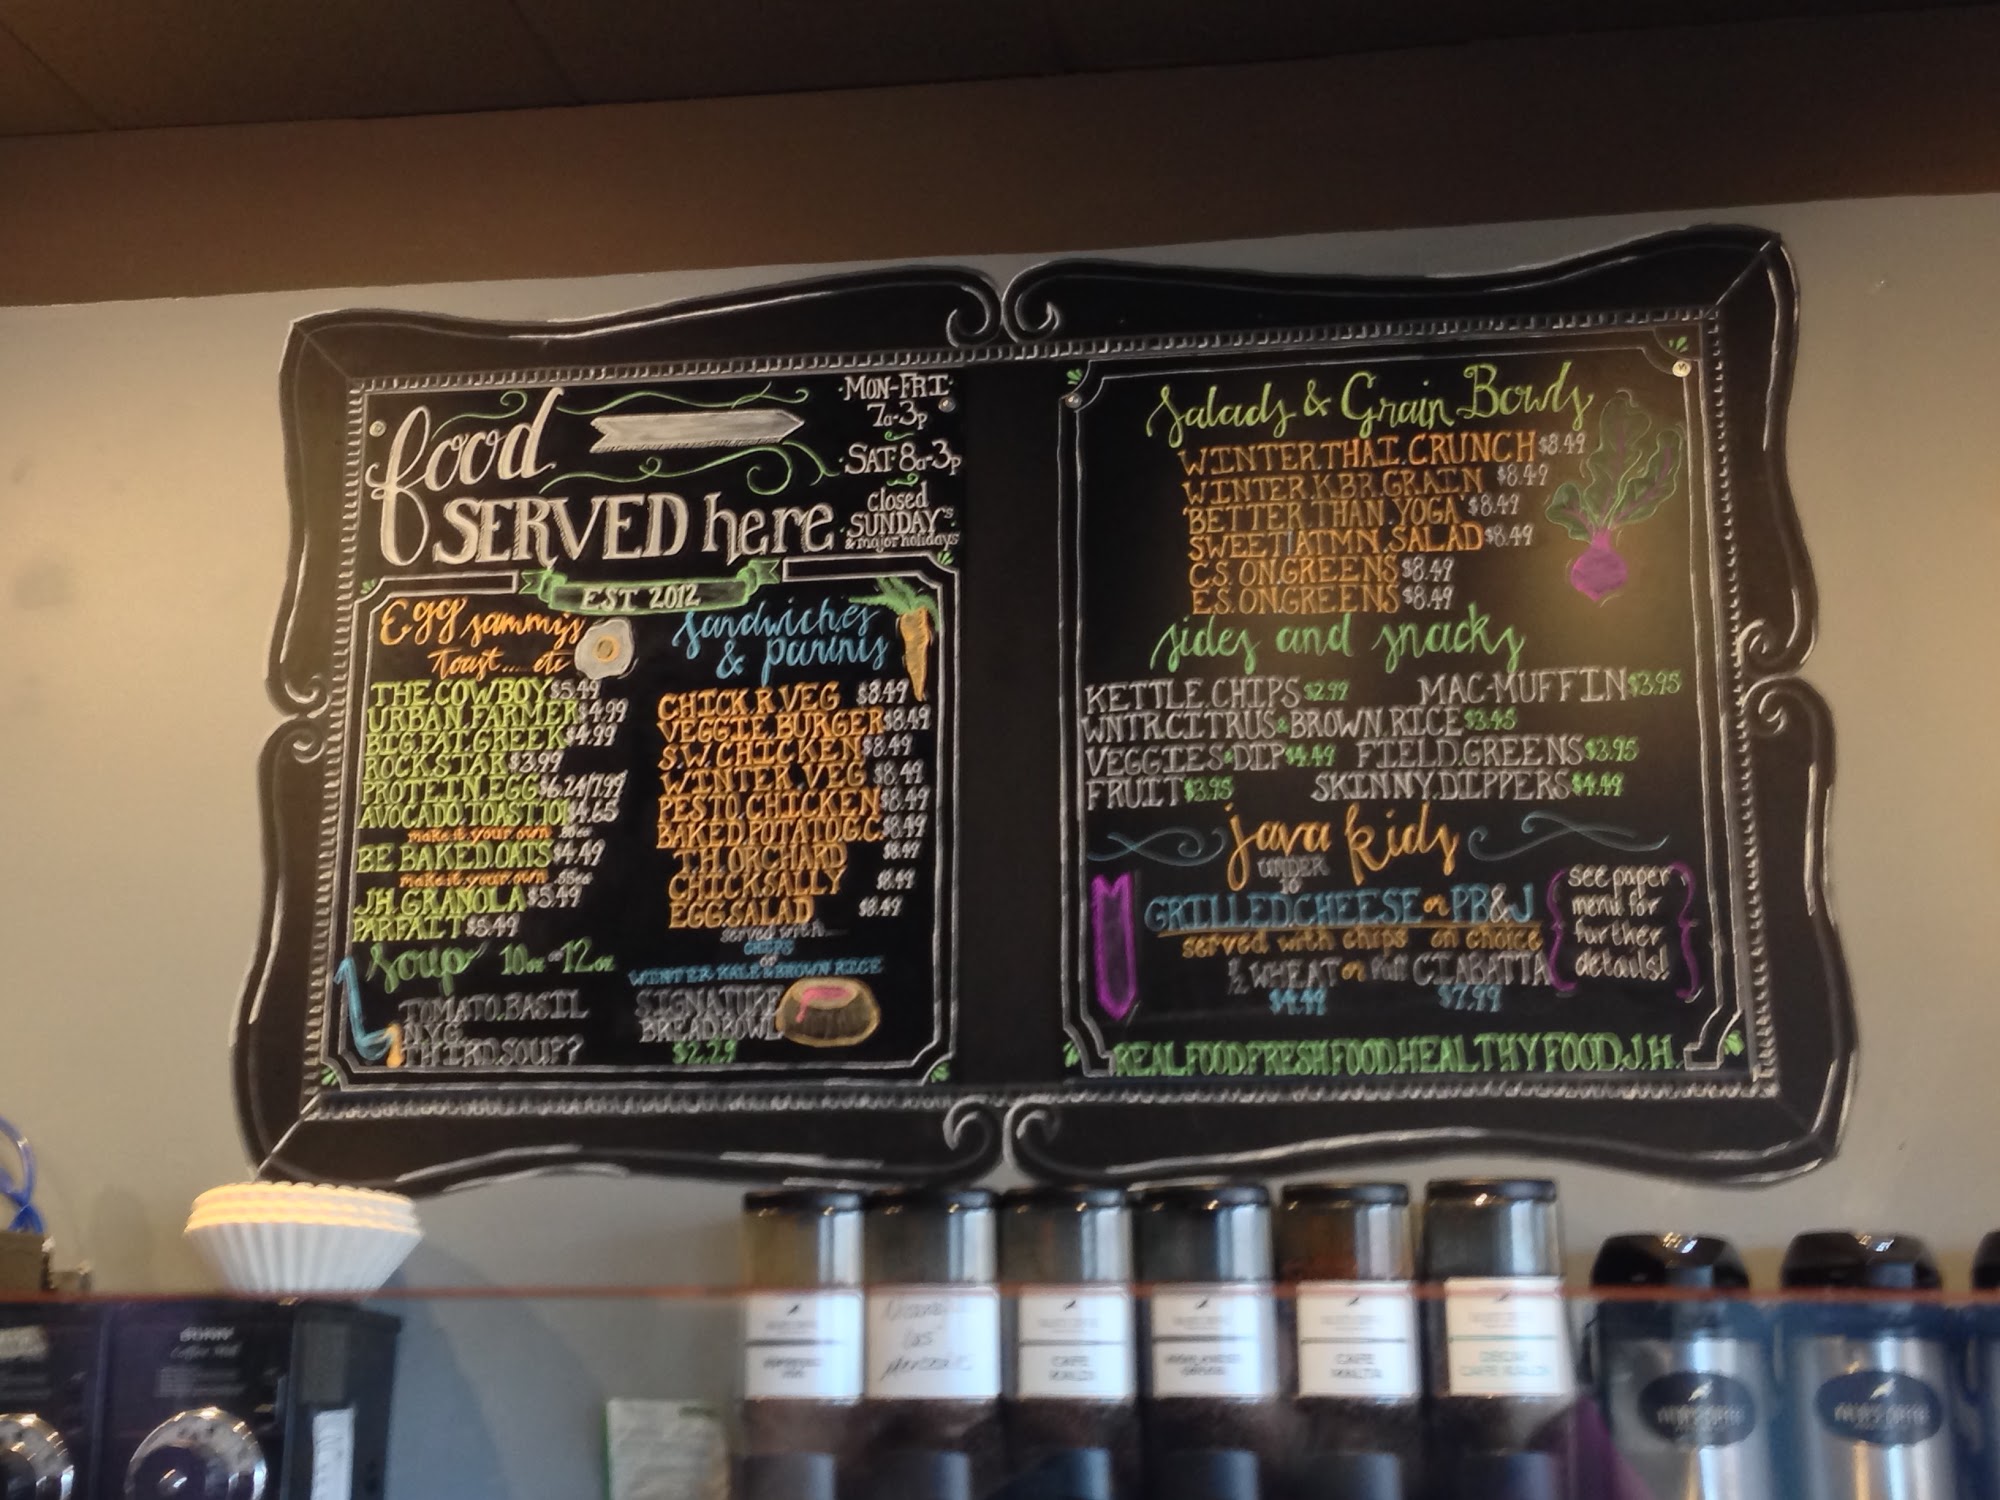 food
SERVED here
MON-FRI
7a-3p
SAT 8a-3p
closed
SUNDAY'S
& major holidays
EST 2012
Egg sammys
Toast.....etc
THE.COWBOY $5.49
URBAN.FARMER $4.99
BIG.FAT.GREEK $4.99
ROCKSTAR $3.99
PROTEIN.EGG $6.24/7.99
AVOCADO.TOAST.101 $4.65
make.it.your.own .80ea
BE BAKED.OATS $4.49
make.it.your.own .55ea
J.H. GRANOLA $5.49
PARFAIT $5.49
Soup 10oz or 12oz
TOMATO.BASIL
N.Y.G.
THIRD.SOUP?
SIGNATURE
BREAD.BOWL
$2.29
Sandwiches
& paninis
CHICK.R.VEG $8.49
VEGGIE.BURGER $8.49
S.W.CHICKEN $8.49
WINTER.VEG $8.49
PESTO.CHICKEN $8.49
BAKED.POTATO.G.C. $8.49
T.H.ORCHARD $8.49
CHICK.SALLY $8.49
EGG.SALAD $8.49
served with.....
CHIPS
or
WINTER KALE & BROWN RICE
Salads & Grain Bowls
WINTER.THAI.CRUNCH $8.49
WINTER.KBR.GRAIN $8.49
BETTER.THAN.YOGA $8.49
SWEET|ATMN.SALAD $8.49
C.S. ON.GREENS $8.49
E.S. ON.GREENS $8.49
sides and snacks
KETTLE.CHIPS $2.99 MAC-MUFFIN $3.95
WNTR.CITRUS & BROWN.RICE $3.45
VEGGIES & DIP $4.49 FIELD.GREENS $3.95
FRUIT $3.95 SKINNY.DIPPERS $4.49
java kids
UNDER
10
GRILLED.CHEESE or PB&J
served with chips or choice
½ WHEAT or Full CIABATTA
$4.49 $7.99
see paper
menu for
further
details!
REAL.FOOD.FRESH.FOOD.HEALTHY.FOOD.J.H.
BUNN
Coffee Mill
CAFE
KALDI
HIGHLANDER
GROGG
CAFE
MALTA
DECAF
CAFE KALDI